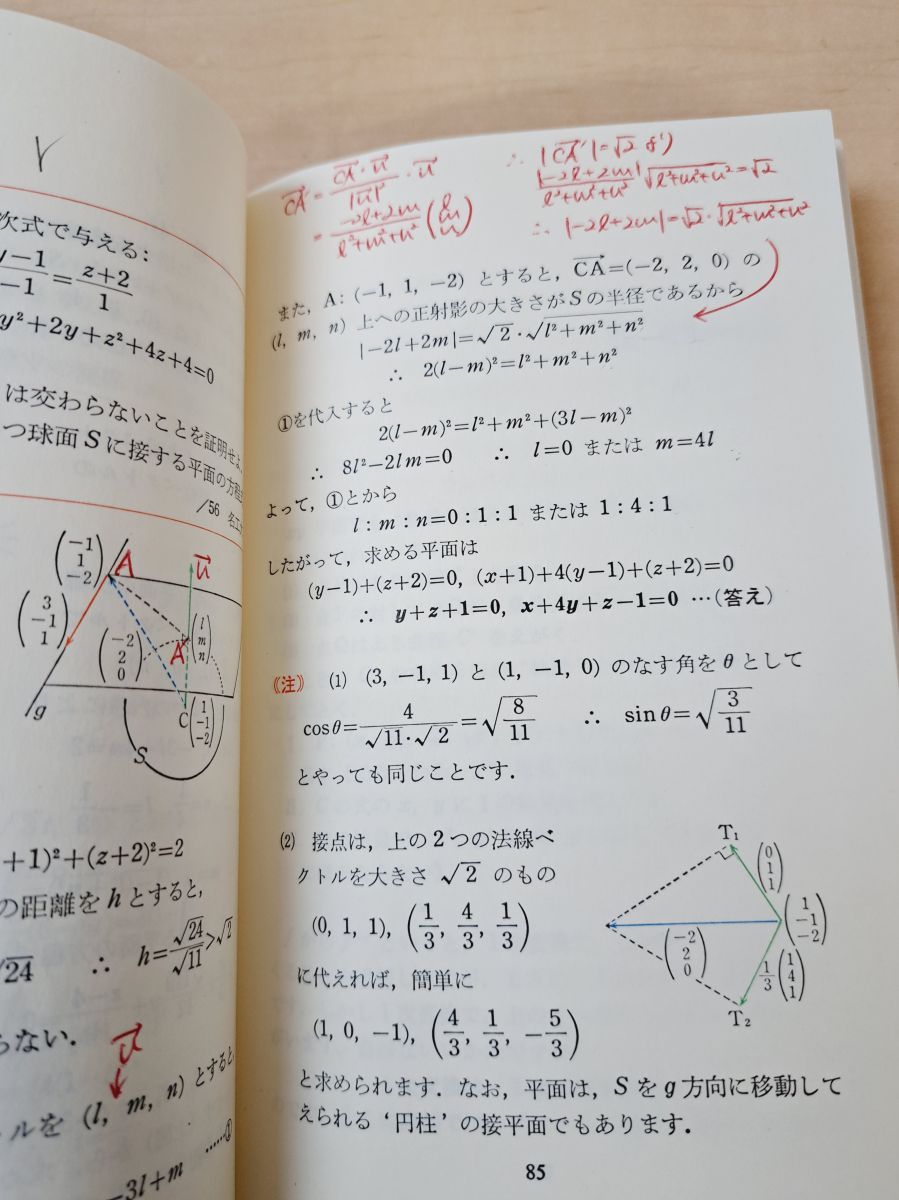 次式で与える:
y−1/−1=z+2/1
y²+2y+z²+4z+4=0
は変わらないことを証明せよ.
つ球面Sに接する平面の方程式
/56 名工
(−1 1 −2)
A
u→
(3 −1 1)
(−2 2 0)
A'
(l m n)
g
C(1 −1 −2)
S
+1)²+(z+2)²=2
の距離をhとすると,
√24 ∴ h=√24/√11>√2
らない.
u→
ルを (l, m, n) とすると
……①
−3l+m
CA'→=CA→・u→/|u→|²・u→
=−2l+2m/l²+m²+n²(l m n)
∴ |CA'→|=√2 より
|−2l+2m|/l²+m²+n²√l²+m²+n²=√2
∴ |−2l+2m|=√2・√l²+m²+n²
また, A:(−1, 1, −2) とすると, CA→=(−2, 2, 0) の
(l, m, n) 上への正射影の大きさがSの半径であるから
|−2l+2m|=√2・√l²+m²+n²
∴ 2(l−m)²=l²+m²+n²
①を代入すると
2(l−m)²=l²+m²+(3l−m)²
∴ 8l²−2lm=0 ∴ l=0 または m=4l
よって, ①とから
l:m:n=0:1:1 または 1:4:1
したがって, 求める平面は
(y−1)+(z+2)=0, (x+1)+4(y−1)+(z+2)=0
∴ y+z+1=0, x+4y+z−1=0 …(答え)
《注》 (1) (3, −1, 1) と (1, −1, 0) のなす角をθとして
cosθ=4/√11・√2=√8/11 ∴ sinθ=√3/11
とやっても同じことです.
(2) 接点は, 上の2つの法線ベ
クトルを大きさ √2 のもの
(0, 1, 1), (1/3, 4/3, 1/3)
に代えれば, 簡単に
(1, 0, −1), (4/3, 1/3, −5/3)
T₁
(0 1 1)
(1 −1 −2)
(−2 2 0)
1/3(1 4 1)
T₂
と求められます. なお, 平面は, Sをg方向に移動して
えられる '円柱' の接平面でもあります.
85